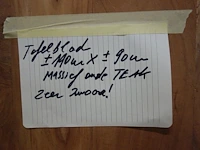 Tafelblad
± 140cm X ± 90cm
MASSief oude TEAK
Zeer zwaar!